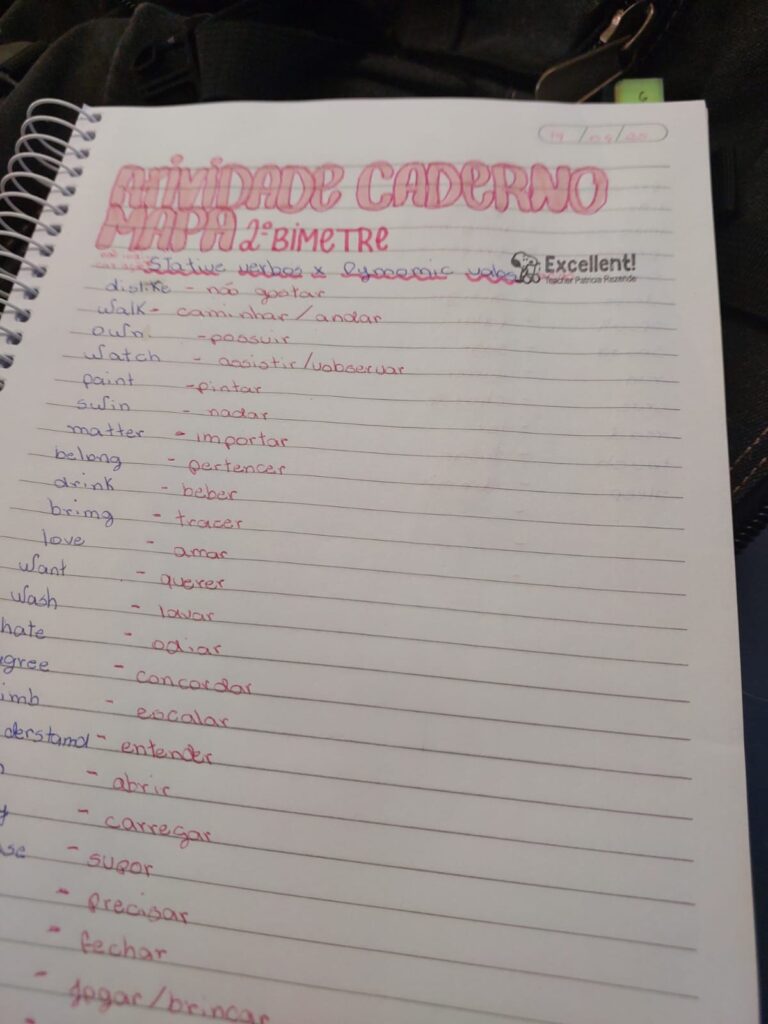 6
19/04/
ATIVIDADE CADERNO
MAPA 2º BIMETRE
Stative verbos x Dynamic
Excellent!
Teacher Patricia Rezende
dislike - não gostar
walk - caminhar/andar
own - possuir
watch - assistir/vobservar
paint - pintar
swin - nadar
matter - importar
belong - pertencer
drink - beber
brimg - tracer
love - amar
want - querer
wash - lavar
hate - odiar
gree - concordar
imb - escalar
derstamd - entender
- abrir
- carregar
se - supor
- precisar
- fechar
- jogar/brincar